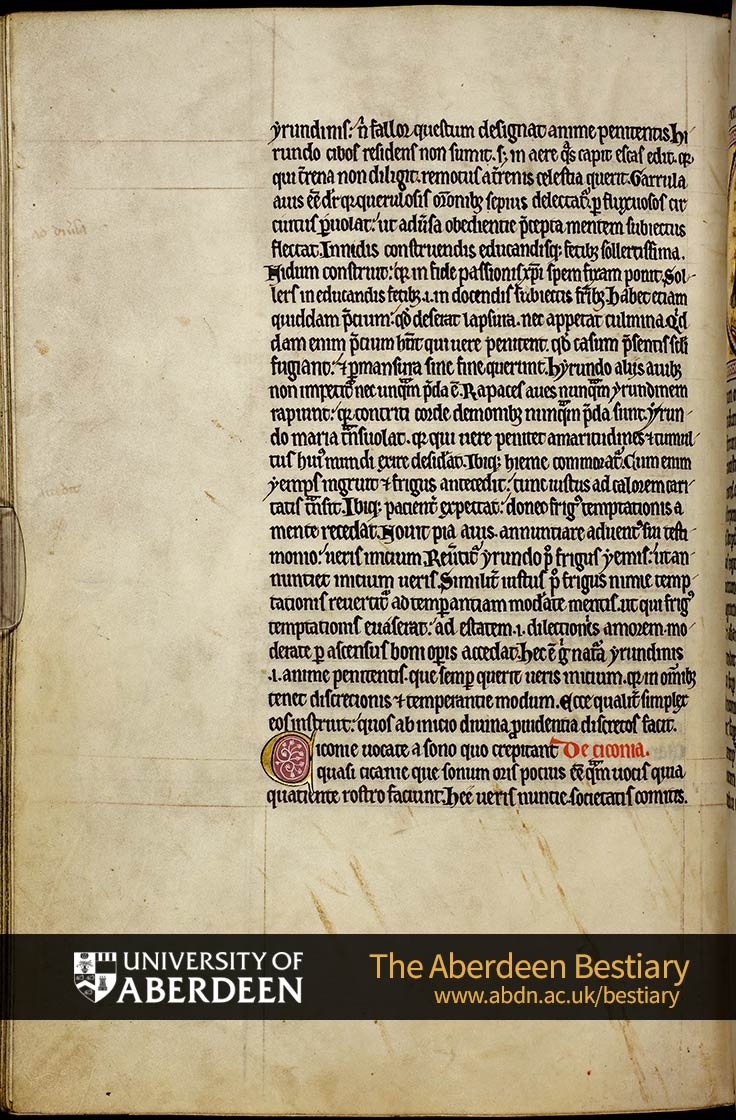 yrundinis: ñ fallor questum designat anime penitentis. Hi
rundo cibos residens non sumit. s; in aere q̃s capit escas edit. q̃
qui t̃rena non diligit. remotus a t̃renis celestia querit. Garrula
auis eẽ dr̃ q̃ querulosis or̃onib; sepius delectat᷑. p̱ fluxuosos cir
cuitus p̱uolat: ut adũsa obedientie p̃cepta mentem subiectus
flectat. In nidis construendis educandisq; fetib; sollertissima.
Nidum construit: q̃ in fide passionis xp̃i spem fixam ponit. Sol
lers in educandis fetib; .i. in docendis subiectis fr̃ib; Habet etiam
quiddam p̃scium: qd̃ deserat lapsura. nec appetat culmina. Q̃d
dam enim p̃scium hñt qui uere penitent. qd̃ casum p̃sentis sc̃li
fugiant: ⁊ p̱mansura sine fine querunt. Hyrundo alijs auib;
non impetit᷑ nec unq̃m p̃da ẽ. Rapaces aues nunq̃m yrundinem
rapiunt: q̃ contriti corde demonib; nunq̃m p̃da sunt. Yrun
do maria t̃nsuolat. q̃ qui uere penitet amaritudines ⁊ tumul
tus hui᷒ mundi exire desid̃at. Ibiq; hieme commorat᷑. Cum enim
yemps ingruit ⁊ frigus antecedit: tunc iustus ad calorem cari
tatis t̃nsit. Ibiq; pacient᷑ expectat: donec frig᷒ temptationis a
mente recedat. Nouit pia auis. annuntiare aduent᷒ sui testi
monio: ueris inicium. Reũtit᷑ yrundo p᷒ frigus yemis: ut an
nuntiet inicium ueris. Similit᷑ iustus p᷒ frigus nimie temp
tationis reuertit᷑ ad temp̱antiam mod̃ate mentis. ut qui frig᷒
temptationis euaserat: ad estatem .i. dilectionis amorem mo
derate p̱ ascensus boni op̱is accedat. Hec ẽ g̃ nat̃a yrundinis
.i. anime penitentis. que semp̱ querit ueris inicium. q̃ in om̃ib;
tenet discretionis ⁊ temperantie modum. Ecce qualit᷑ simplex
eos instruit: quos ab inicio diuina ꝓuidentia discretos facit.
Ciconie uocate a sono quo crepitant De ciconia.
quasi cicanie que sonum oris pocius eẽ q̃m uocis quia
quatiente rostro faciunt. Hee ueris nuntie. societatis comites.
UNIVERSITY OF
ABERDEEN
The Aberdeen Bestiary
www.abdn.ac.uk/bestiary